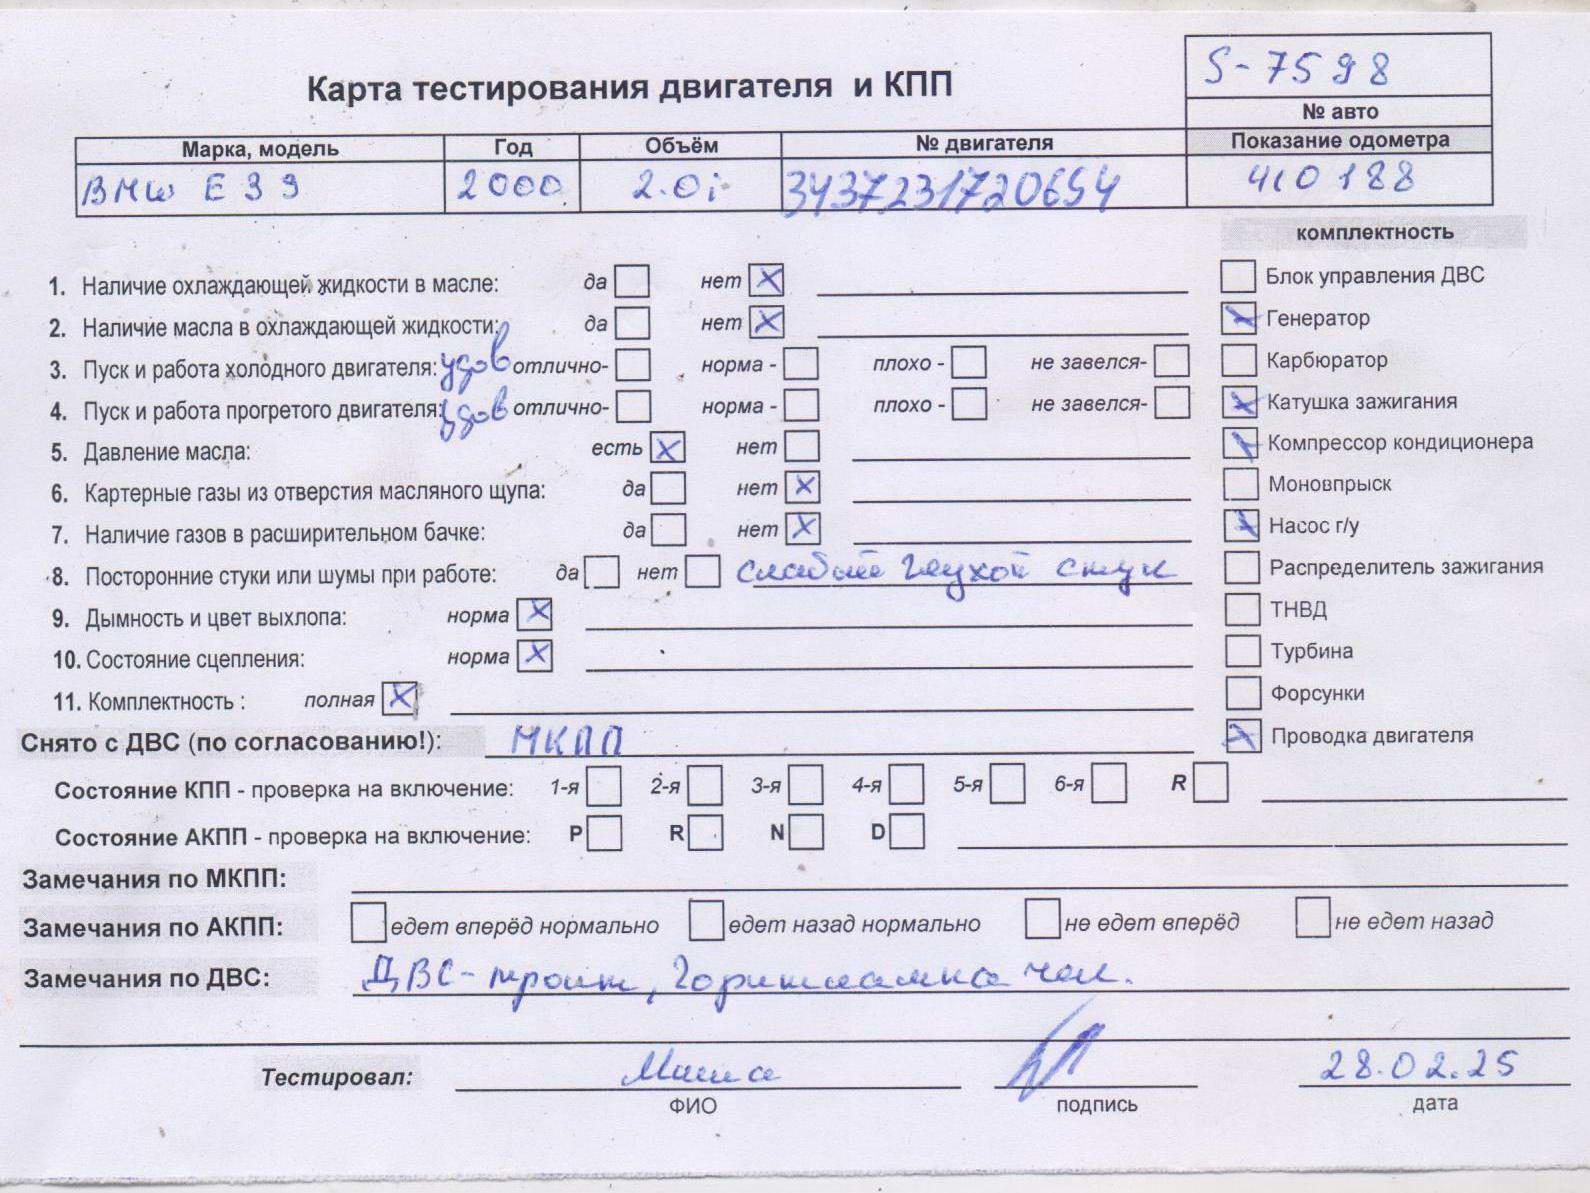 S-7598
Карта тестирования двигателя и КПП
№ авто
Марка, модель Год Объём № двигателя Показание одометра
BMW E39 2000 2.0i 3437231720654 410188
комплектность
1. Наличие охлаждающей жидкости в масле: да нет X Блок управления ДВС
2. Наличие масла в охлаждающей жидкости: да нет X X Генератор
3. Пуск и работа холодного двигателя: удов отлично- норма - плохо - не завелся- Карбюратор
4. Пуск и работа прогретого двигателя: удов отлично- норма - плохо - не завелся- X Катушка зажигания
5. Давление масла: есть X нет X Компрессор кондиционера
6. Картерные газы из отверстия масляного щупа: да нет X Моновпрыск
7. Наличие газов в расширительном бачке: да нет X X Насос г/у
8. Посторонние стуки или шумы при работе: да нет слабый глухой стук Распределитель зажигания
9. Дымность и цвет выхлопа: норма X ТНВД
10. Состояние сцепления: норма X Турбина
11. Комплектность : полная X Форсунки
Снято с ДВС (по согласованию!): МКПП X Проводка двигателя
Состояние КПП - проверка на включение: 1-я 2-я 3-я 4-я 5-я 6-я R
Состояние АКПП - проверка на включение: P R N D
Замечания по МКПП:
Замечания по АКПП: едет вперёд нормально едет назад нормально не едет вперёд не едет назад
Замечания по ДВС: ДВС - троит, Горит лампа чек.
Тестировал: 28.02.25
ФИО подпись дата